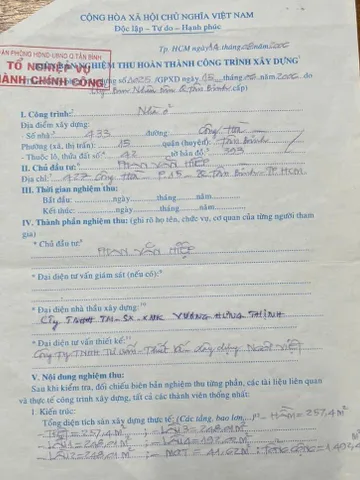 CỘNG HÒA XÃ HỘI CHỦ NGHĨA VIỆT NAM
Độc lập – Tự do – Hạnh phúc
Tp. HCM ngày tháng năm
VĂN PHÒNG HĐND-UBND Q.TÂN BÌNH
TỔ NGHIỆP VỤ
HÀNH CHÍNH CÔNG
BẢN NGHIỆM THU HOÀN THÀNH CÔNG TRÌNH XÂY DỰNG
số /GPXD ngày 15 tháng năm do
cấp)
I. Công trình: Nhà ở
Địa điểm xây dựng:
- Số nhà: 433 đường: Cộng Hòa
Phường (xã, thị trấn): 15 quận (huyện): Tân Bình
- Thuộc lô, thửa đất số: 42 tờ bản đồ:
II. Chủ đầu tư: PHAN VĂN HIỆP
Địa chỉ: Cộng Hòa P.15 - Q Tân Bình - TP.HCM
III. Thời gian nghiệm thu:
Bắt đầu: ngày tháng năm
Kết thúc: ngày tháng năm
IV. Thành phần nghiệm thu: (ghi rõ họ tên, chức vụ, cơ quan của từng người tham
gia)
* Chủ đầu tư:
PHAN VĂN HIỆP
* Đại diện tư vấn giám sát (nếu có):
* Đại diện nhà thầu xây dựng:
CTy TNHH TM-SX-XNK VƯƠNG HƯNG THỊNH
* Đại diện tư vấn thiết kế:
Công Ty TNHH Tư vấn - Thiết kế - xây dựng VIỆT
V. Nội dung nghiệm thu:
Sau khi kiểm tra, đối chiếu biên bản nghiệm thu từng phần, các tài liệu liên quan
và thực tế công trình xây dựng, tất cả các thành viên thống nhất:
1. Kiến trúc:
Tổng diện tích sàn xây dựng thực tế: (Các tầng, bao lơn,...) - HẦM = 257,4 M²
- TRỆT = 257,4 M² ; - LẦU 3 = M²
- LẦU 1 = M² ; - LẦU 4 = M²
- LẦU 2 = M² ; - MÁT = 41,62 M² ; TỔNG CỘNG = M²